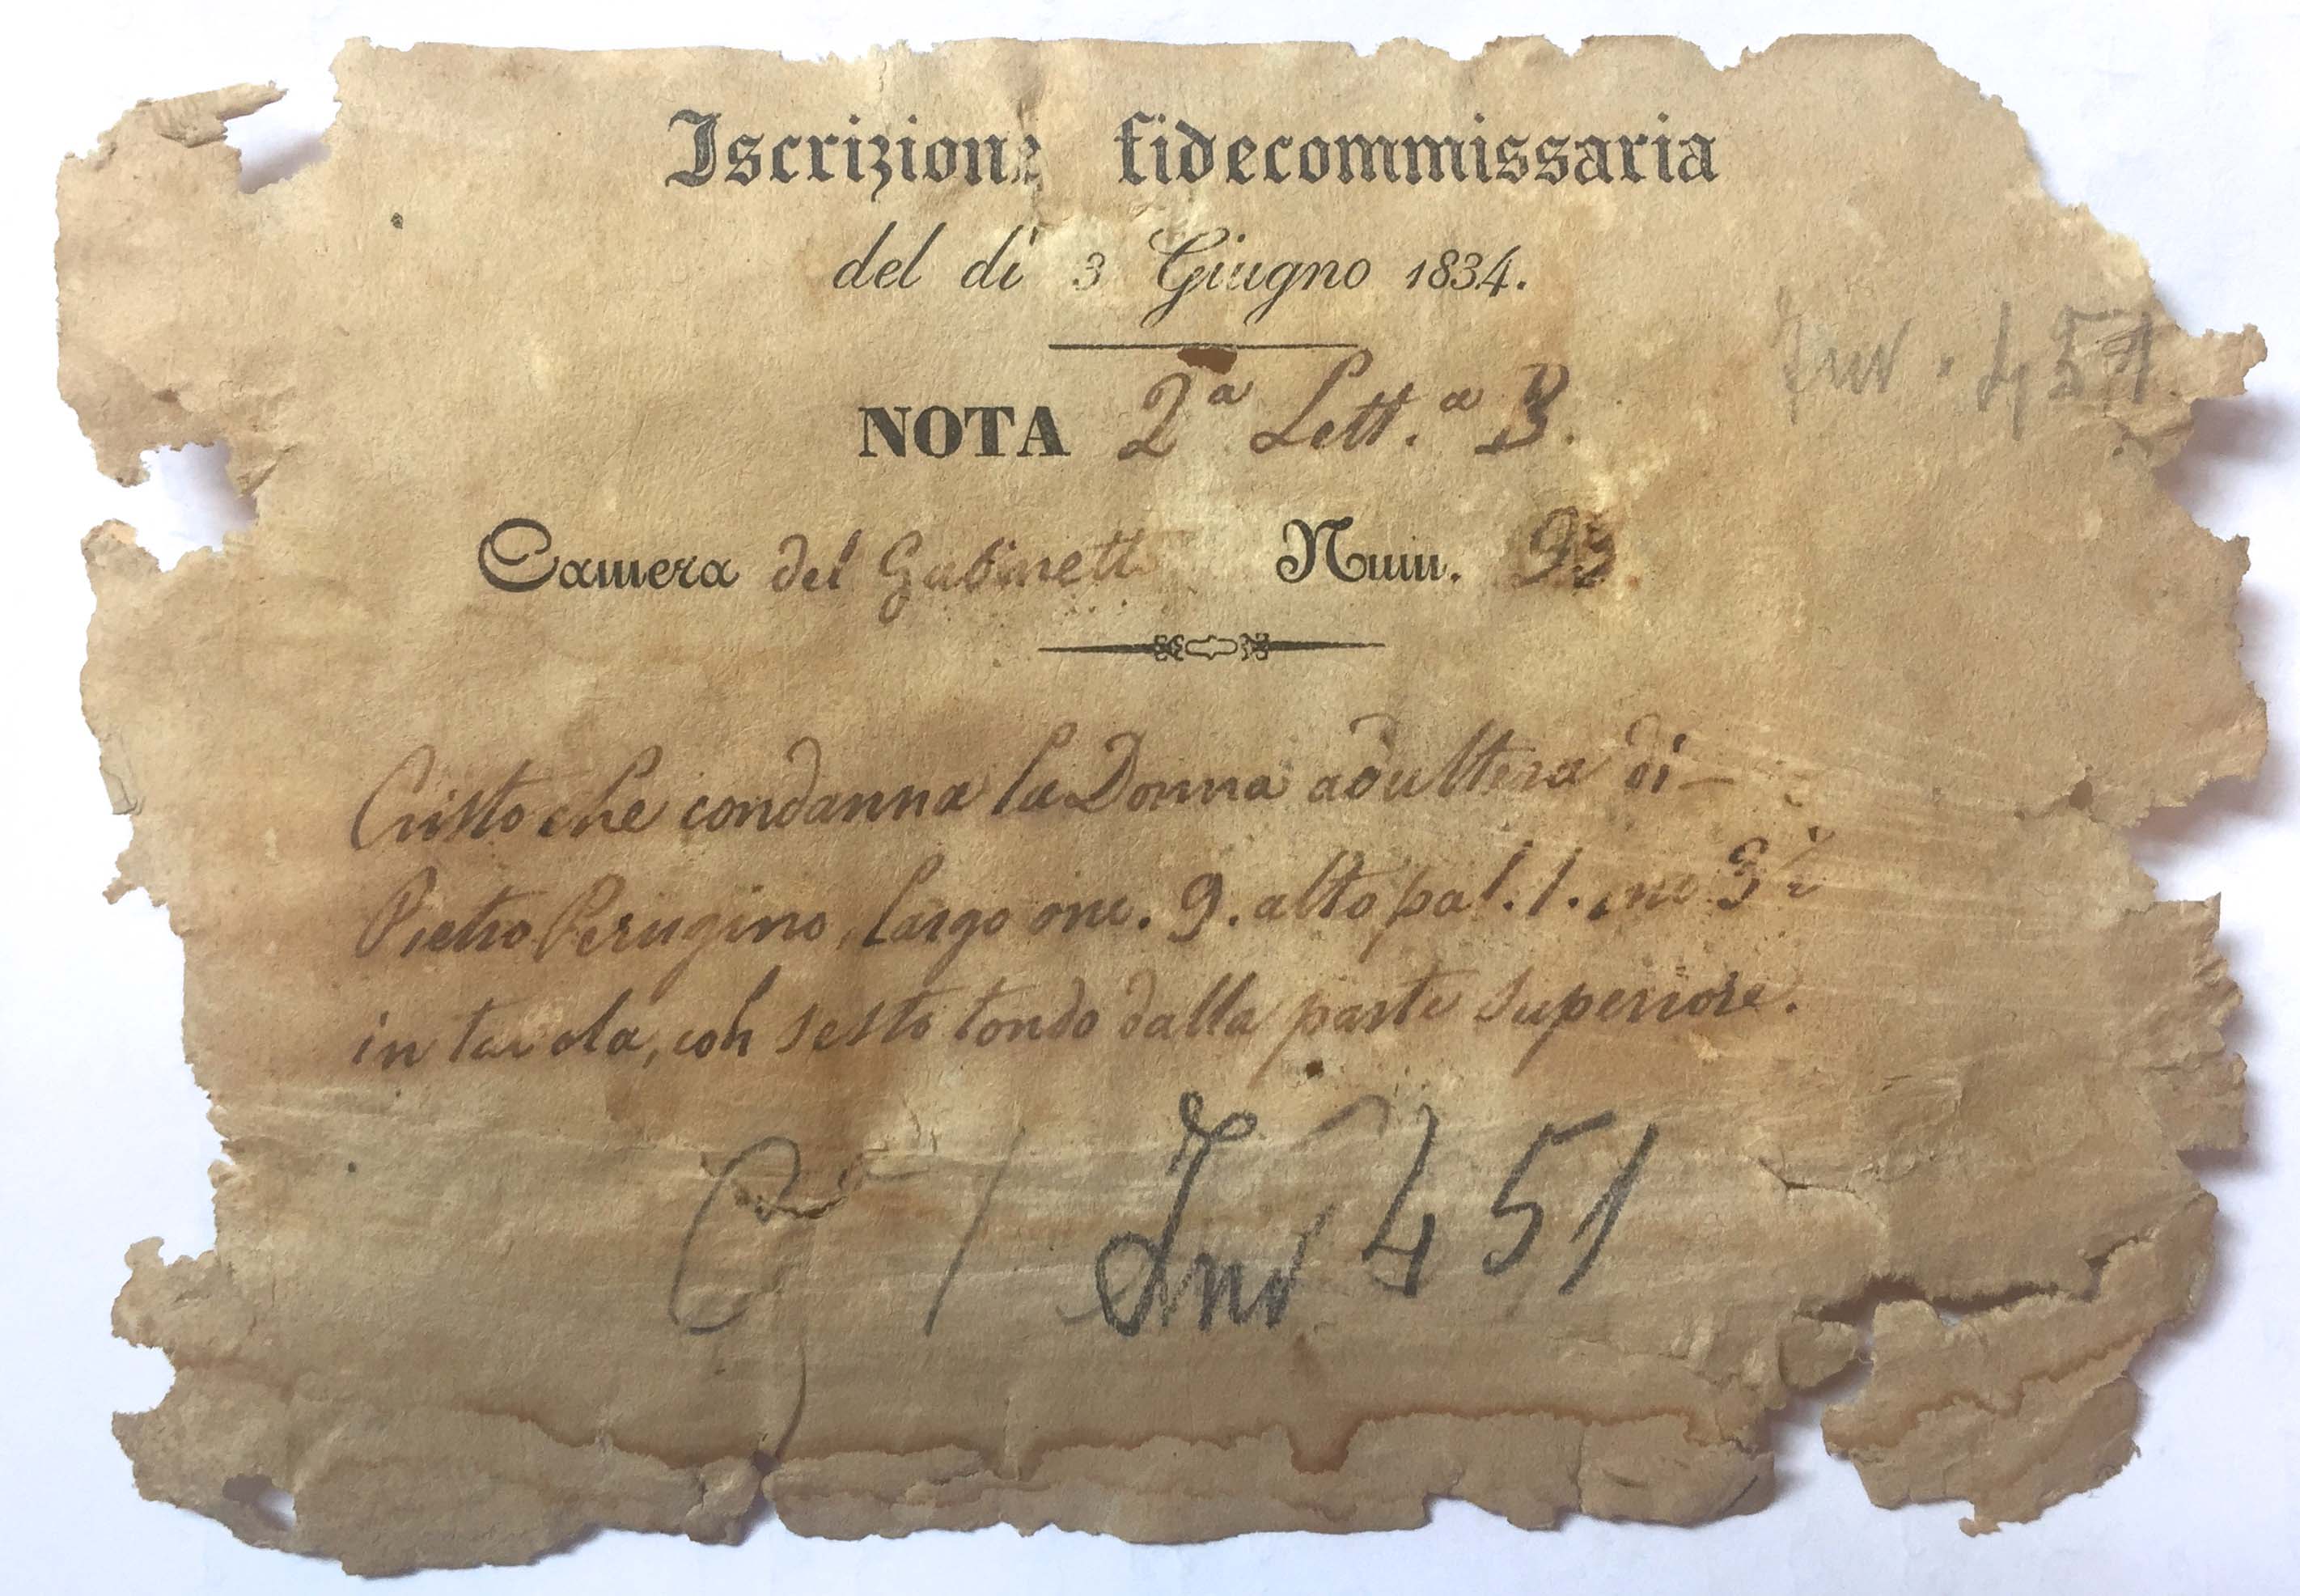 Iscrizione fidecommissaria
del dì 3 Giugno 1834.
Inv. 451
NOTA 2ª Lett.ª B.
Camera del Gabinetto Num. 93.
Cristo che condanna la Donna adultera di
Pietro Perugino, largo onc. 9. alto pal. 1. onc 3½
in tavola, con sesto tondo dalla parte superiore.
Inv 451